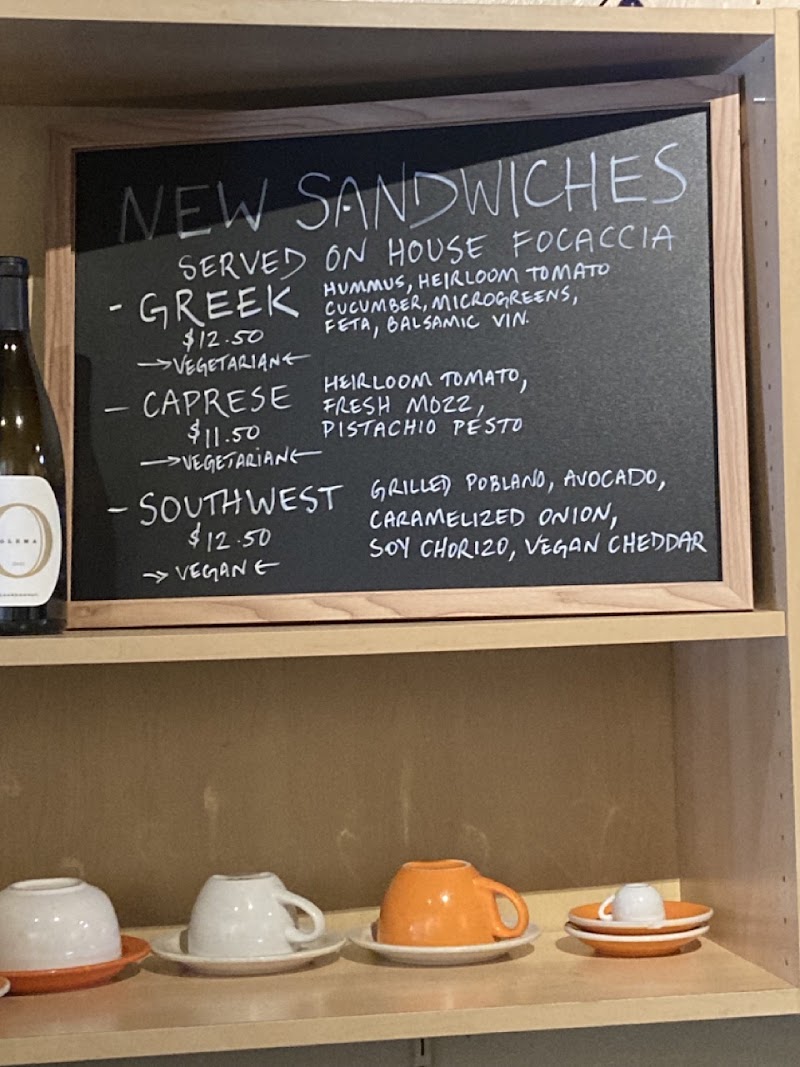 NEW SANDWICHES
SERVED ON HOUSE FOCACCIA
- GREEK
$12.50
→VEGETARIAN←
HUMMUS, HEIRLOOM TOMATO
CUCUMBER, MICROGREENS,
FETA, BALSAMIC VIN.
- CAPRESE
$11.50
→VEGETARIAN←
HEIRLOOM TOMATO,
FRESH MOZZ,
PISTACHIO PESTO
- SOUTHWEST
$12.50
→ VEGAN ←
GRILLED POBLANO, AVOCADO,
CARAMELIZED ONION,
SOY CHORIZO, VEGAN CHEDDAR